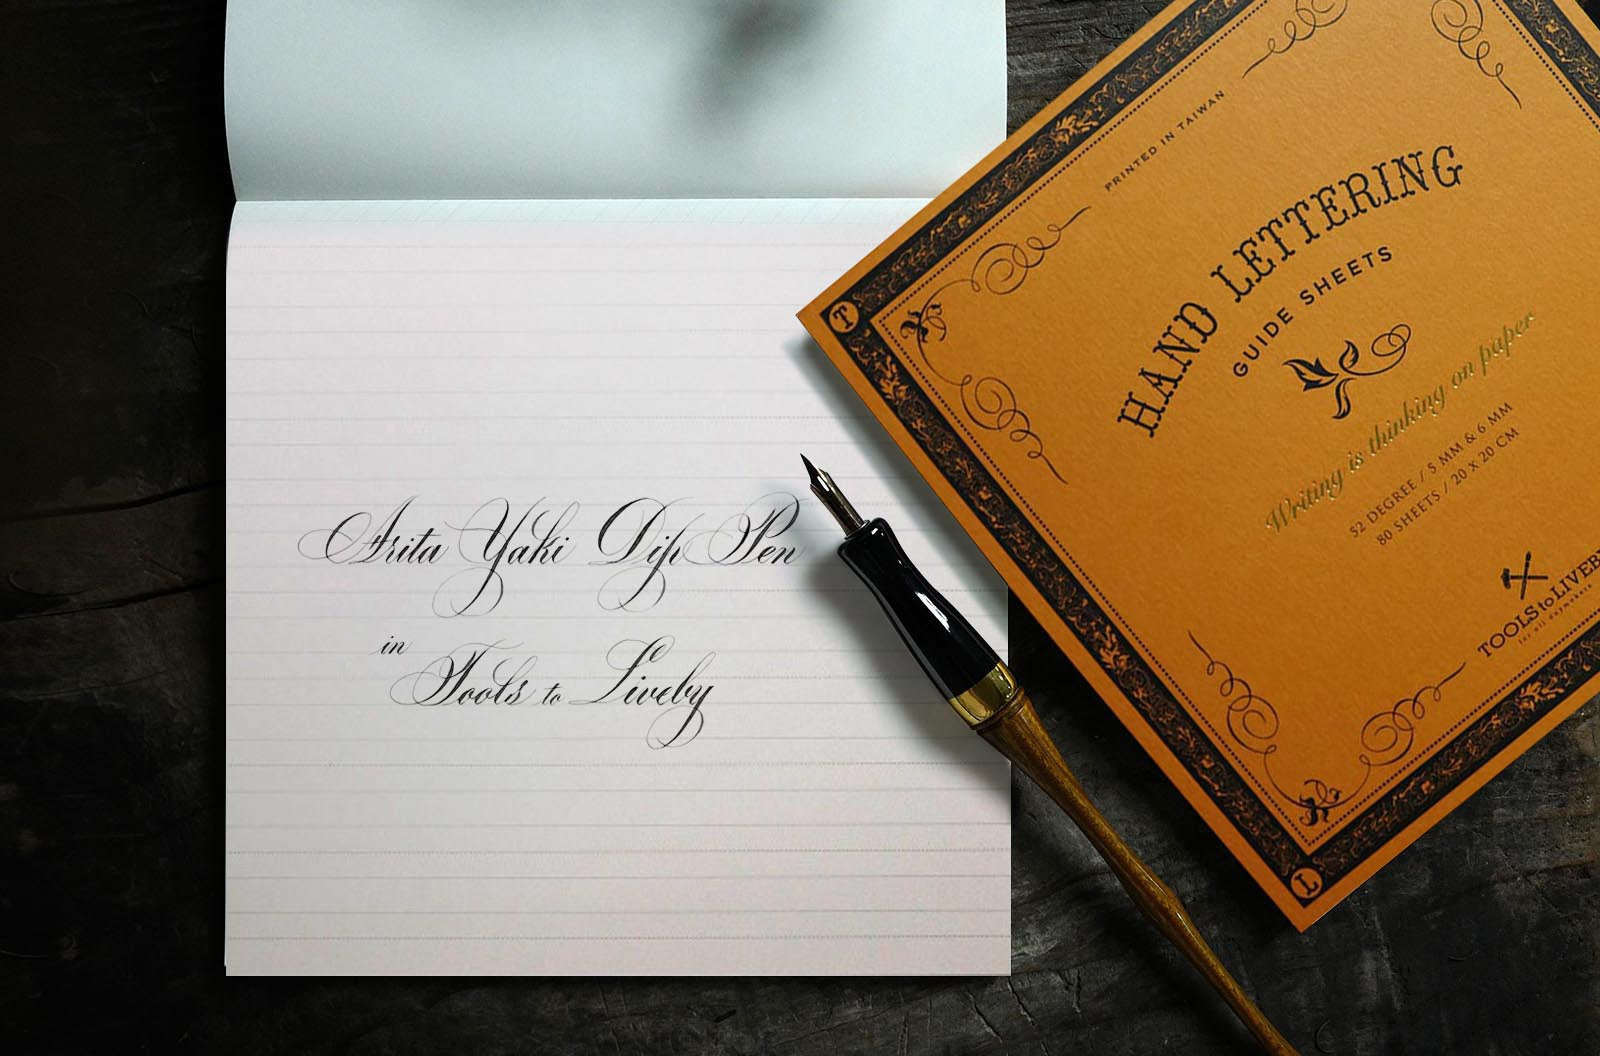 Arita Yaki Dip Pen
in
Tools to Liveby
PRINTED IN TAIWAN
HAND LETTERING
GUIDE SHEETS
Writing is thinking on paper
52 DEGREE / 5 MM & 6 MM
80 SHEETS / 20 x 20 CM
TOOLS to LIVEB
T
L